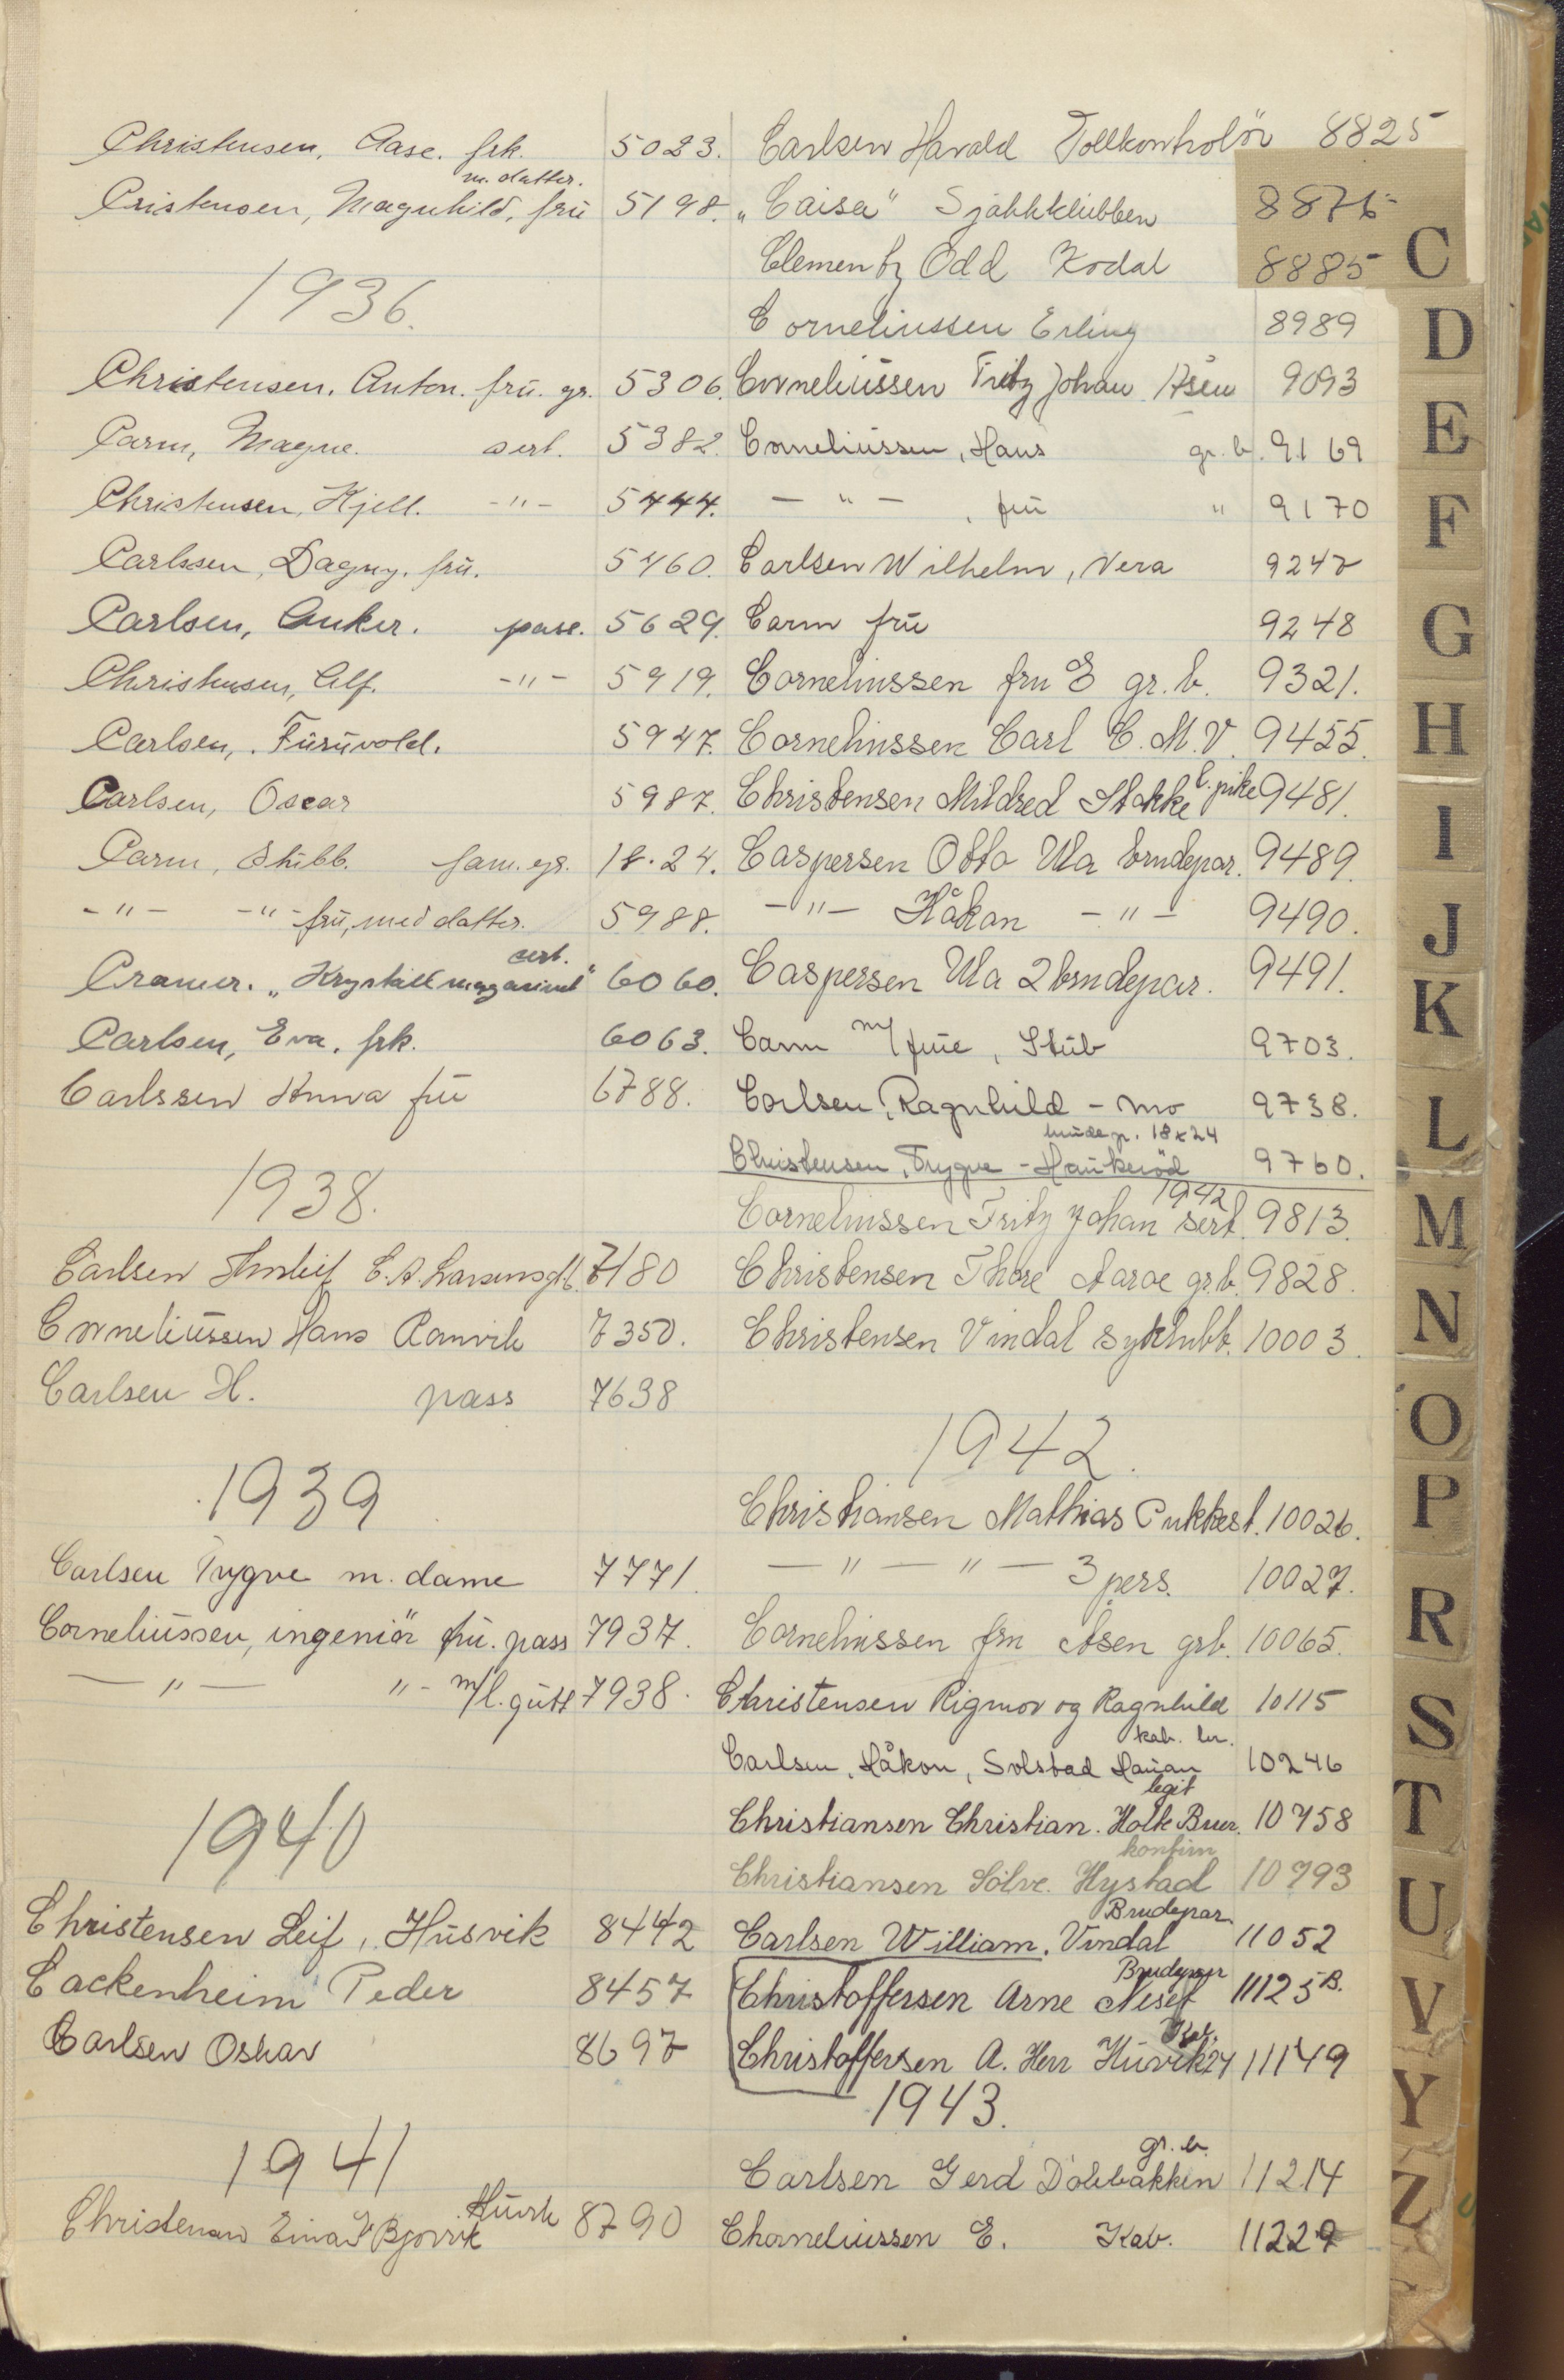 Christensen, Aase. frk. 5023.
m. datter.
Cristensen, Magnhild, frü 5198.
1936.
Christensen, Anton. frü. gr. 5306.
Carm, Magne. sert. 5382.
Christensen, Kjell. -"- 5444.
Carlssen, Dagny. frü. 5460.
Carlsen, Anker. pass. 5629.
Christensen, Alf. -"- 5919.
Carlsen, Furüvold. 5947.
Carlsen, Oscar 5987.
Carm, Stübb. fam. gr. 18.24.
-"- -"- frü, med datter. 5988.
sert.
Cramer. „Krystallmagasinet" 6060.
Carlsen, Eva. frk. 6063.
Carlssen Anna frü 6788.
1938.
Carlsen C.A. Larsensgt. 7180
Corneliüssen Hans Ranvik 7350.
Carlsen H. pass 7638
1939
Carlsen Trygve m. dame 7771.
Corneliüssen, ingeniör frü. pass 7937.
— " — " - m/l. gütt 7938.
1940
Christensen Leif, Hüsvik 8442
Cackenheim Peder 8457
Carlsen Oskar 8697
1941
Christensen Einar Bjørvik 8790
Carlsen Harald Tollkontrolör 8825
„Caisa" Sjakkklübben 8876
Clementz Odd Kodal 8885
Corneliussen Erling 8989
Corneliüssen Fritz Johan Åsen 9093
Corneliüssen, Hans gr. b. 9169
— " — , frü " 9170
Carlsen Wilhelm, Vera 9247
Carm frü 9248
Corneliussen fru E gr. b. 9321.
Corneliussen Carl C. M. V. 9455.
Christensen Mildred Stokke l. pike 9481.
Caspersen Otto Ula brudepar. 9489.
-"- Håkan -"- 9490.
Caspersen Ula 2 brudepar. 9491.
Carm m/ früe, Stüb 9703.
Carlsen, Ragnhild - Mo 9738.
brüdep. 18x24
Christensen, Trygve - Haükeröd 9760.
1942
Corneliussen Fritz Johan sert. 9813.
Christensen Thore Aarøe gr.b. 9828.
Christensen Vindal syklubb. 10003.
1942.
Christiansen Mathias Pukkest. 10026.
— " — " — 3 pers. 10027.
Corneliussen fru Åsen grb. 10065.
Christensen Rigmor og Ragnhild 10115
kab. br.
Carlsen, Håkon, Solstad Haüan 10246
legit
Christiansen Christian. Holte Bruer. 10758
konfirm
Christiansen Sölve. Hystad 10793
Brudepar
Carlsen William. Vindal 11052
Brudepar
Christoffersen Arne Neset 11125 B.
Kab.
Christoffersen A. Herr Hüvik 24 11149
1943.
gr. b.
Carlsen Gerd Dølebakken 11214
Chorneliussen E. Kab. 11229
C
D
E
F
G
H
I
J
K
L
M
N
O
P
R
S
T
U
V
Y
Z